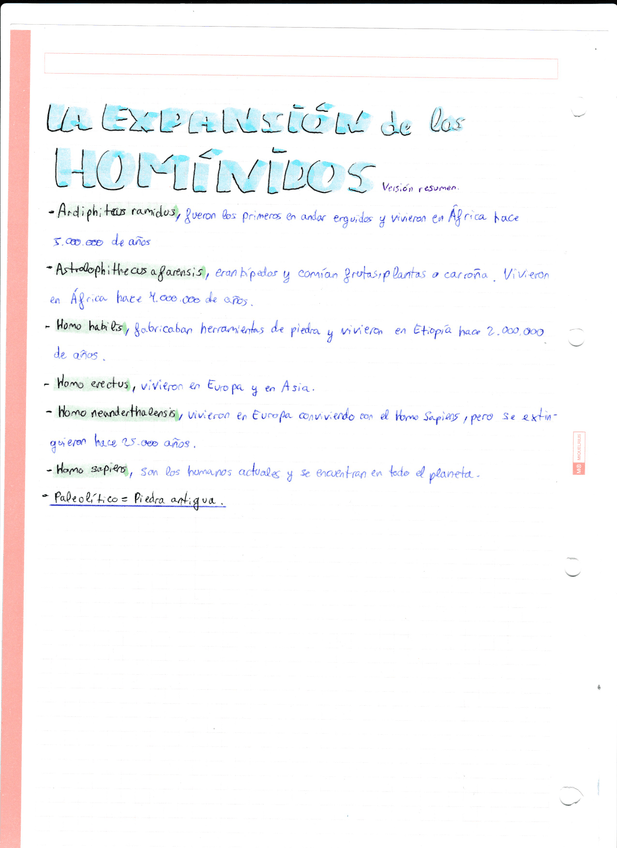 LA EXPANSIÓN de los
HOMÍNIDOS Versión resumen.
- Ardiphiteus ramidus, fueron los primeros en andar erguidos y vivieron en África hace
5.000.000 de años
- Astralophithecus afarensis, eran bípedos y comían frutas, plantas o carroña. Vivieron
en África hace 4.000.000 de años.
- Homo habilis, fabricaban herramientas de piedra y vivieron en Etiopía hace 2.000.000
de años.
- Homo erectus, vivieron en Europa y en Asia.
- Homo neanderthalensis, vivieron en Europa conviviendo con el Homo Sapiens, pero se extin-
guieron hace 25.000 años.
- Homo sapiens, son los humanos actuales y se encuentran en todo el planeta.
- Paleolítico = Piedra antigua.